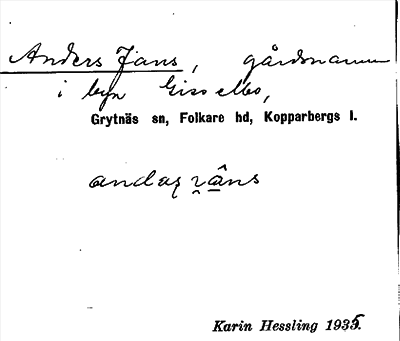 Anders Jans, gårdsnamn
i byn Gisselbo,
Grytnäs sn, Folkare hd, Kopparbergs l.
Karin Hessling 1935.